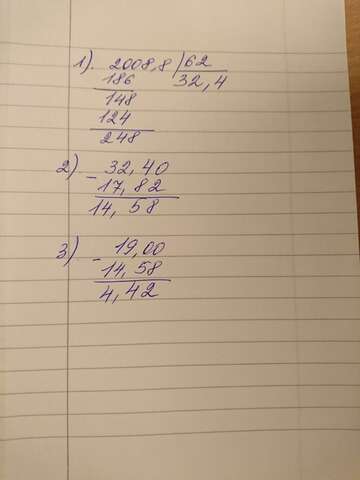 1). 2008,8 62
186 32,4
148
124
248
2) - 32,40
17,82
14,58
3) - 19,00
14,58
4,42